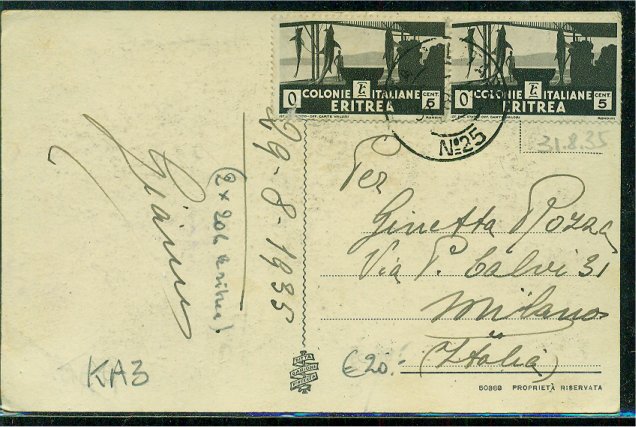 COLONIE ITALIANE
ERITREA
CENT. 5
COLONIE ITALIANE
ERITREA
CENT. 5
Nº 25
31.8.35
29-8-1935
(2 x 206 Eritrea)
Per
Ginetta Rozza
Via P. Calvi 31
Milano
(Italia)
€20.-
KA3
50869 PROPRIETÀ RISERVATA